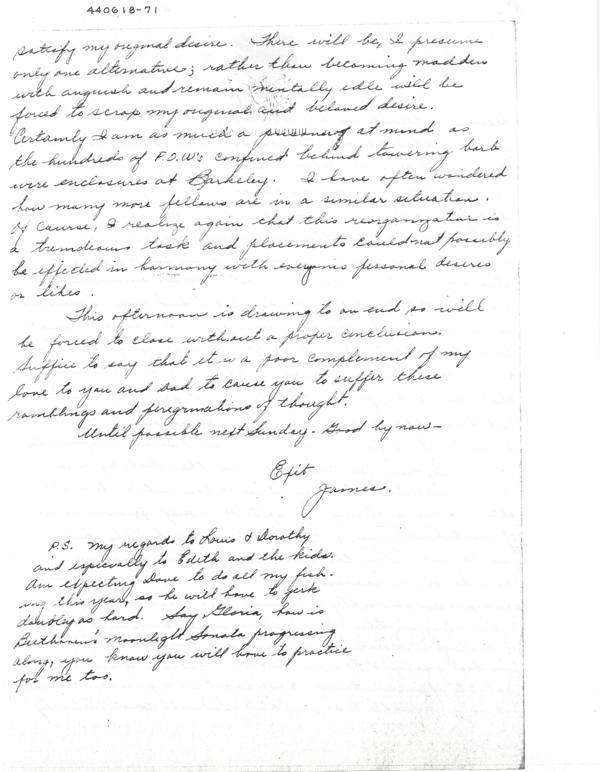 440618-71
satisfy my original desire. There will be, I presume
only one alternative; rather than becoming madden
with anguish and remain mentally idle will be
forced to scrap my original and beloved desire.
Certainly I am as much a prisoner of mind as
the hundreds of P.O.W's confined behind towering barb
wire enclosures at Barkeley. I have often wondered
how many more fellows are in a similar situation.
Of course, I realize again that this reorganization is
a tremdeous task and placements could not possibly
be effected in harmony with everyone's personal desires
or likes.
This afternoon is drawing to an end so will
be forced to close without a proper conclusion.
Suffice to say that it is a poor complement of my
love to you and Dad to cause you to suffer these
ramblings and peregrinations of thought.
Until possible next Sunday - Good by now -
James.
P.S. My regards to Louis & Dorothy
and especially to Edith and the kids.
Am expecting Dave to do all my fish-
ing this year, so he will have to jerk
doubly as hard. Say Gloria, how is
Beethoven's Moonlight Sonata progressing
along, you know you will have to practice
for me too.